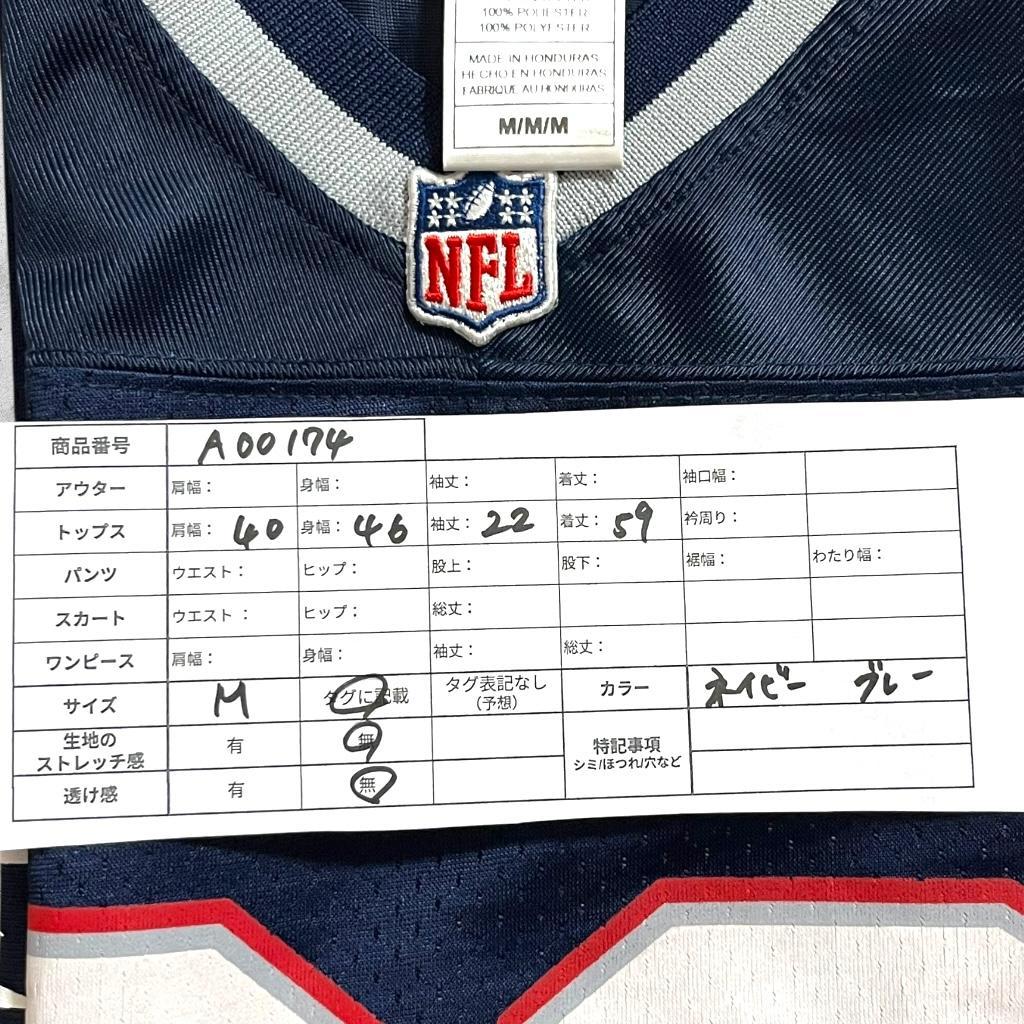 100% POLIESTER
100% POLYESTER
MADE IN HONDURAS
HECHO EN HONDURAS
FABRIQUE AU HONDURAS
M/M/M
NFL
商品番号 A00174
アウター 肩幅： 身幅： 袖丈： 着丈： 袖口幅：
トップス 肩幅： 40 身幅： 46 袖丈： 22 着丈： 59 衿周り：
パンツ ウエスト： ヒップ： 股上： 股下： 裾幅： わたり幅：
スカート ウエスト： ヒップ： 総丈：
ワンピース 肩幅： 身幅： 袖丈： 総丈：
サイズ M タグに記載 タグ表記なし（予想） カラー ネイビー グレー
生地のストレッチ感 有 無 特記事項
シミ/ほつれ/穴など
透け感 有 無